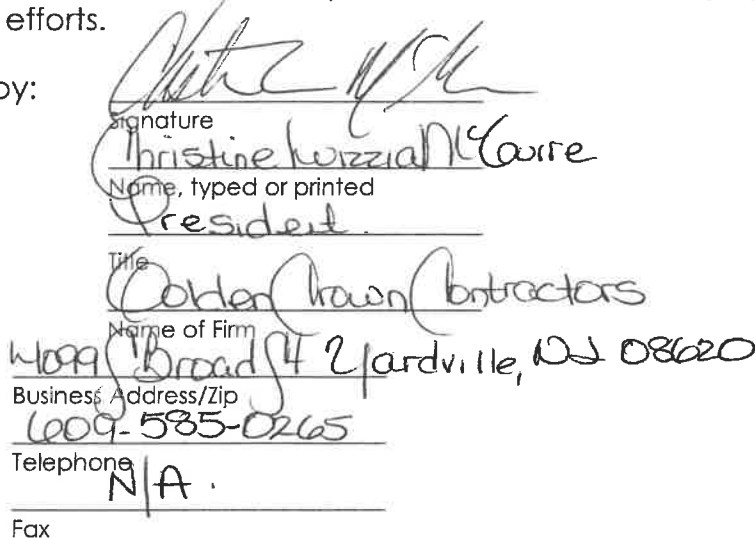 efforts.
by:
Signature
Christine Luizzia McGuire
Name, typed or printed
President.
Title
Golden Crown Contractors
Name of Firm
4099 S Broad St Yardville, NJ 08620
Business Address/Zip
609-585-0265
Telephone
N/A.
Fax